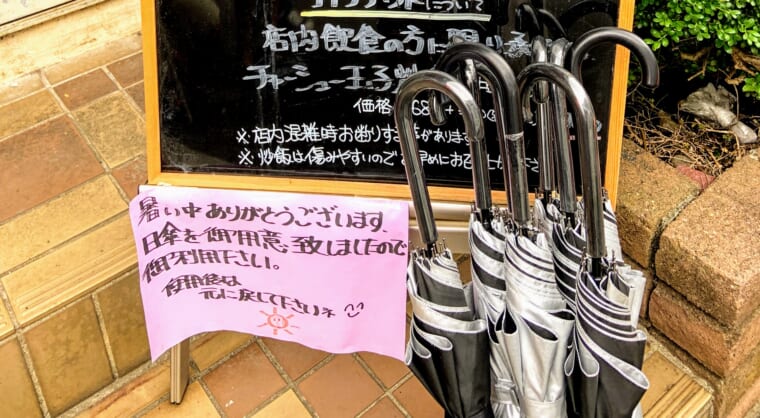 について
店内飲食の方に限り承
チャーシュー玉子炒
価格 68
※店内混雑時お断りする事があります
※炒飯は傷みやすいのでお早めにお召し上がり下さい
暑い中ありがとうございます。
日傘を御用意致しましたので
御利用下さい。
使用後は
元に戻して下さいネ